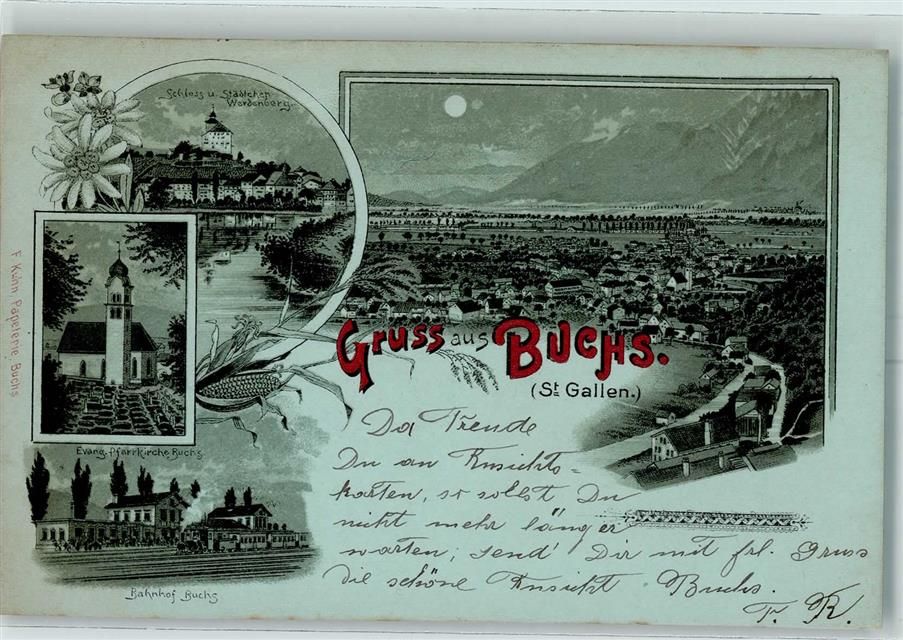 Schloss u. Städtchen
Werdenberg.
F. Kuhn, Papeterie, Buchs
Gruss aus Buchs.
(St. Gallen.)
Evang. Pfarrkirche Buchs
Bahnhof Buchs
Da Freude
Du an Ansichts=
karten, so sollst Du
nicht mehr länger
warten; send' Dir mit frl. Gruss
die schöne Ansicht Buchs.
F. R.